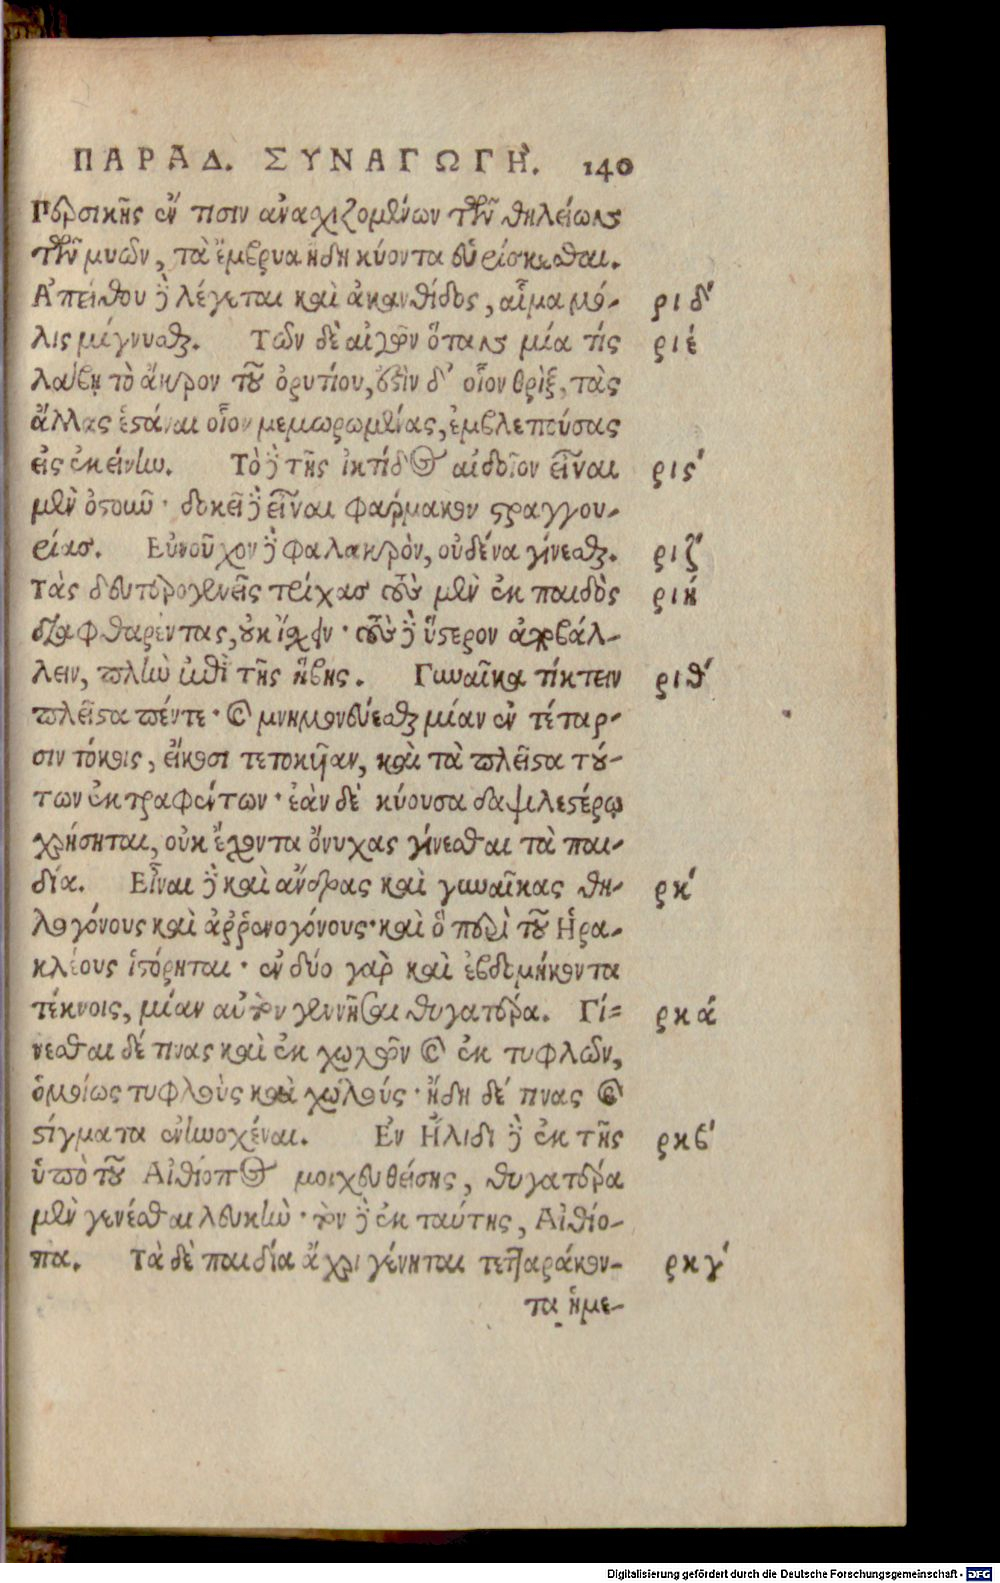 ΠΑΡΑΔ. ΣΥΝΑΓΩΓΉ. 140
Περσικῆς ἔν τισιν ἀναχιζομένων τῶν θηλείων
τῶν μυῶν, τὰ ἔμβρυα ἤδη κύοντα εὑρίσκεσθαι.
Ἀπείθου δὲ λέγεται καὶ ἀκανθίδος, αἷμα μό- ριδʹ
λις μίγνυσθαι. Τῶν δὲ αἰγῶν ὅταν μία τίς ριέ
λαύβη τὸ ἄκρον τοῦ ὀρυτίου, ἐστὶν δ' οἷον θρὶξ, τὰς
ἄλλας ἑστάναι οἷον μεμωρωμένας, ἐμβλεπούσας
εἰς ἐκείνην. Τὸ δὲ τῆς ἰκτίδος αἰδοῖον εἶναι ριςʹ
μὲν ὀστοιοῦν· δοκεῖ δὲ εἶναι φαρμακον στραγγου-
ρίας. Εὐνοῦχον δὲ φαλακρὸν, οὐδένα γίνεσθαι. ριζʹ
τὰς δευτερογενεῖς τρίχας τοὺς μὲν ἐκ παιδὸς ριή
διαφθαρέντας, οὐκ ἴσχειν· τοὺς δὲ ὕστερον ἀποβάλ-
λειν, πλὴν ἐπὶ τῆς ἥβης. Γυναῖκα τίκτειν ριθʹ
πλεῖστα πέντε· καὶ μνημονεύεσθαι μίαν ἐν τέταρ-
σιν τόκοις, εἴκοσι τετοκυῖαν, καὶ τὰ πλεῖστα τού-
των ἐκτραφέντων· ἐὰν δὲ κύουσα δαψιλεστέρῳ
χρήσηται, οὐκ ἔχοντα ὄνυχας γίνεσθαι τὰ παι-
δία. Εἶναι δὲ καὶ ἄνδρας καὶ γυναῖκας θη- ρκʹ
λογόνους καὶ ἀῤῥενογόνους· καὶ ὃ περὶ τοῦ Ἡρα-
κλέους ἱστόρηται· ἐν δύο γαρ καὶ ἑβδομήκοντα
τέκνοις, μίαν αὐτὸν γεννῆσαι θυγατέρα. Γί- ρκά
νεσθαι δέ τινας καὶ ἐκ χωλῶν καὶ ἐκ τυφλῶν,
ὁμοίως τυφλοὺς καὶ χωλούς· ἤδη δέ τινας καὶ
στίγματα ἐνηνοχέναι. Ἐν Ἤλιδι δὲ ἐκ τῆς ρκβʹ
ὑπὸ τοῦ Αἰθίοπος μοιχευθείσης, θυγατέρα
μὲν γενέσθαι λευκήν· τὸν δὲ ἐκ ταύτης, Αἰθίο-
πα. Τὰ δὲ παιδία ἄχρι γένηται τετταράκον- ρκγʹ
τα ἡμε-
Digitalisierung gefördert durch die Deutsche Forschungsgemeinschaft - DFG